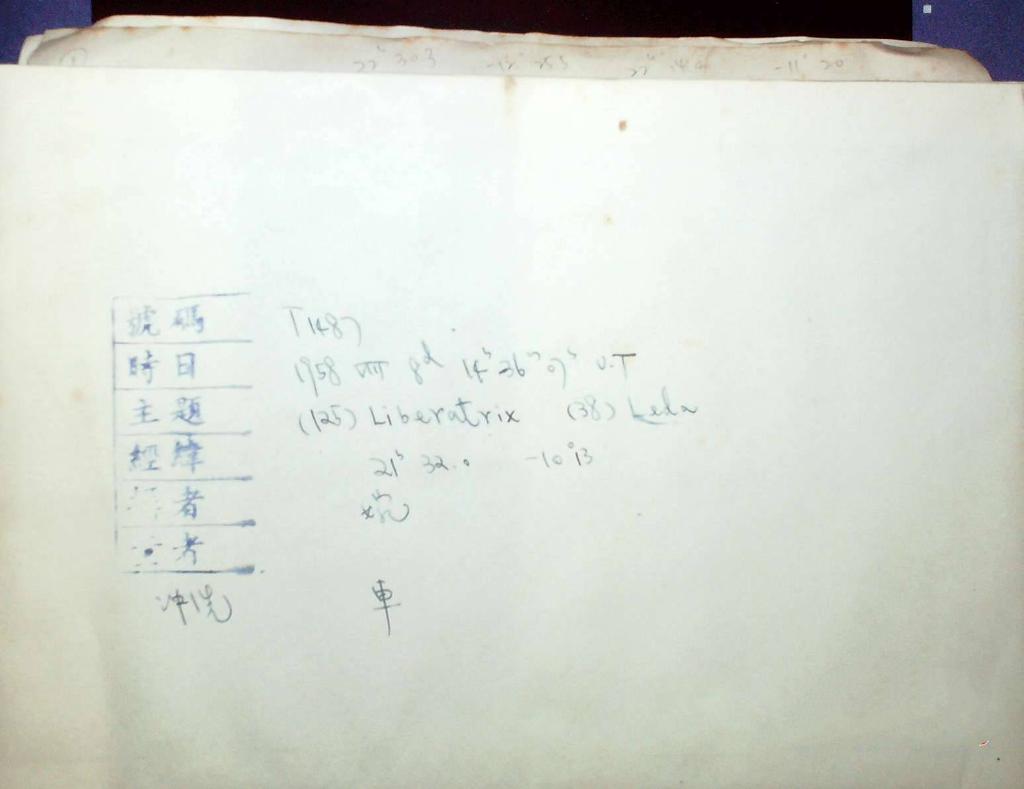 22ʰ 30.3 -12° 25.5 22ʰ 14.4 -11° 20
號碼 T1487
時日 1958 VIII 8ᵈ 14ʰ 36ᵐ 07ˢ U.T
主題 (125) Liberatrix (38) Leda
經緯 21ʰ 32.0 -10°13
者
考
冲洗 車